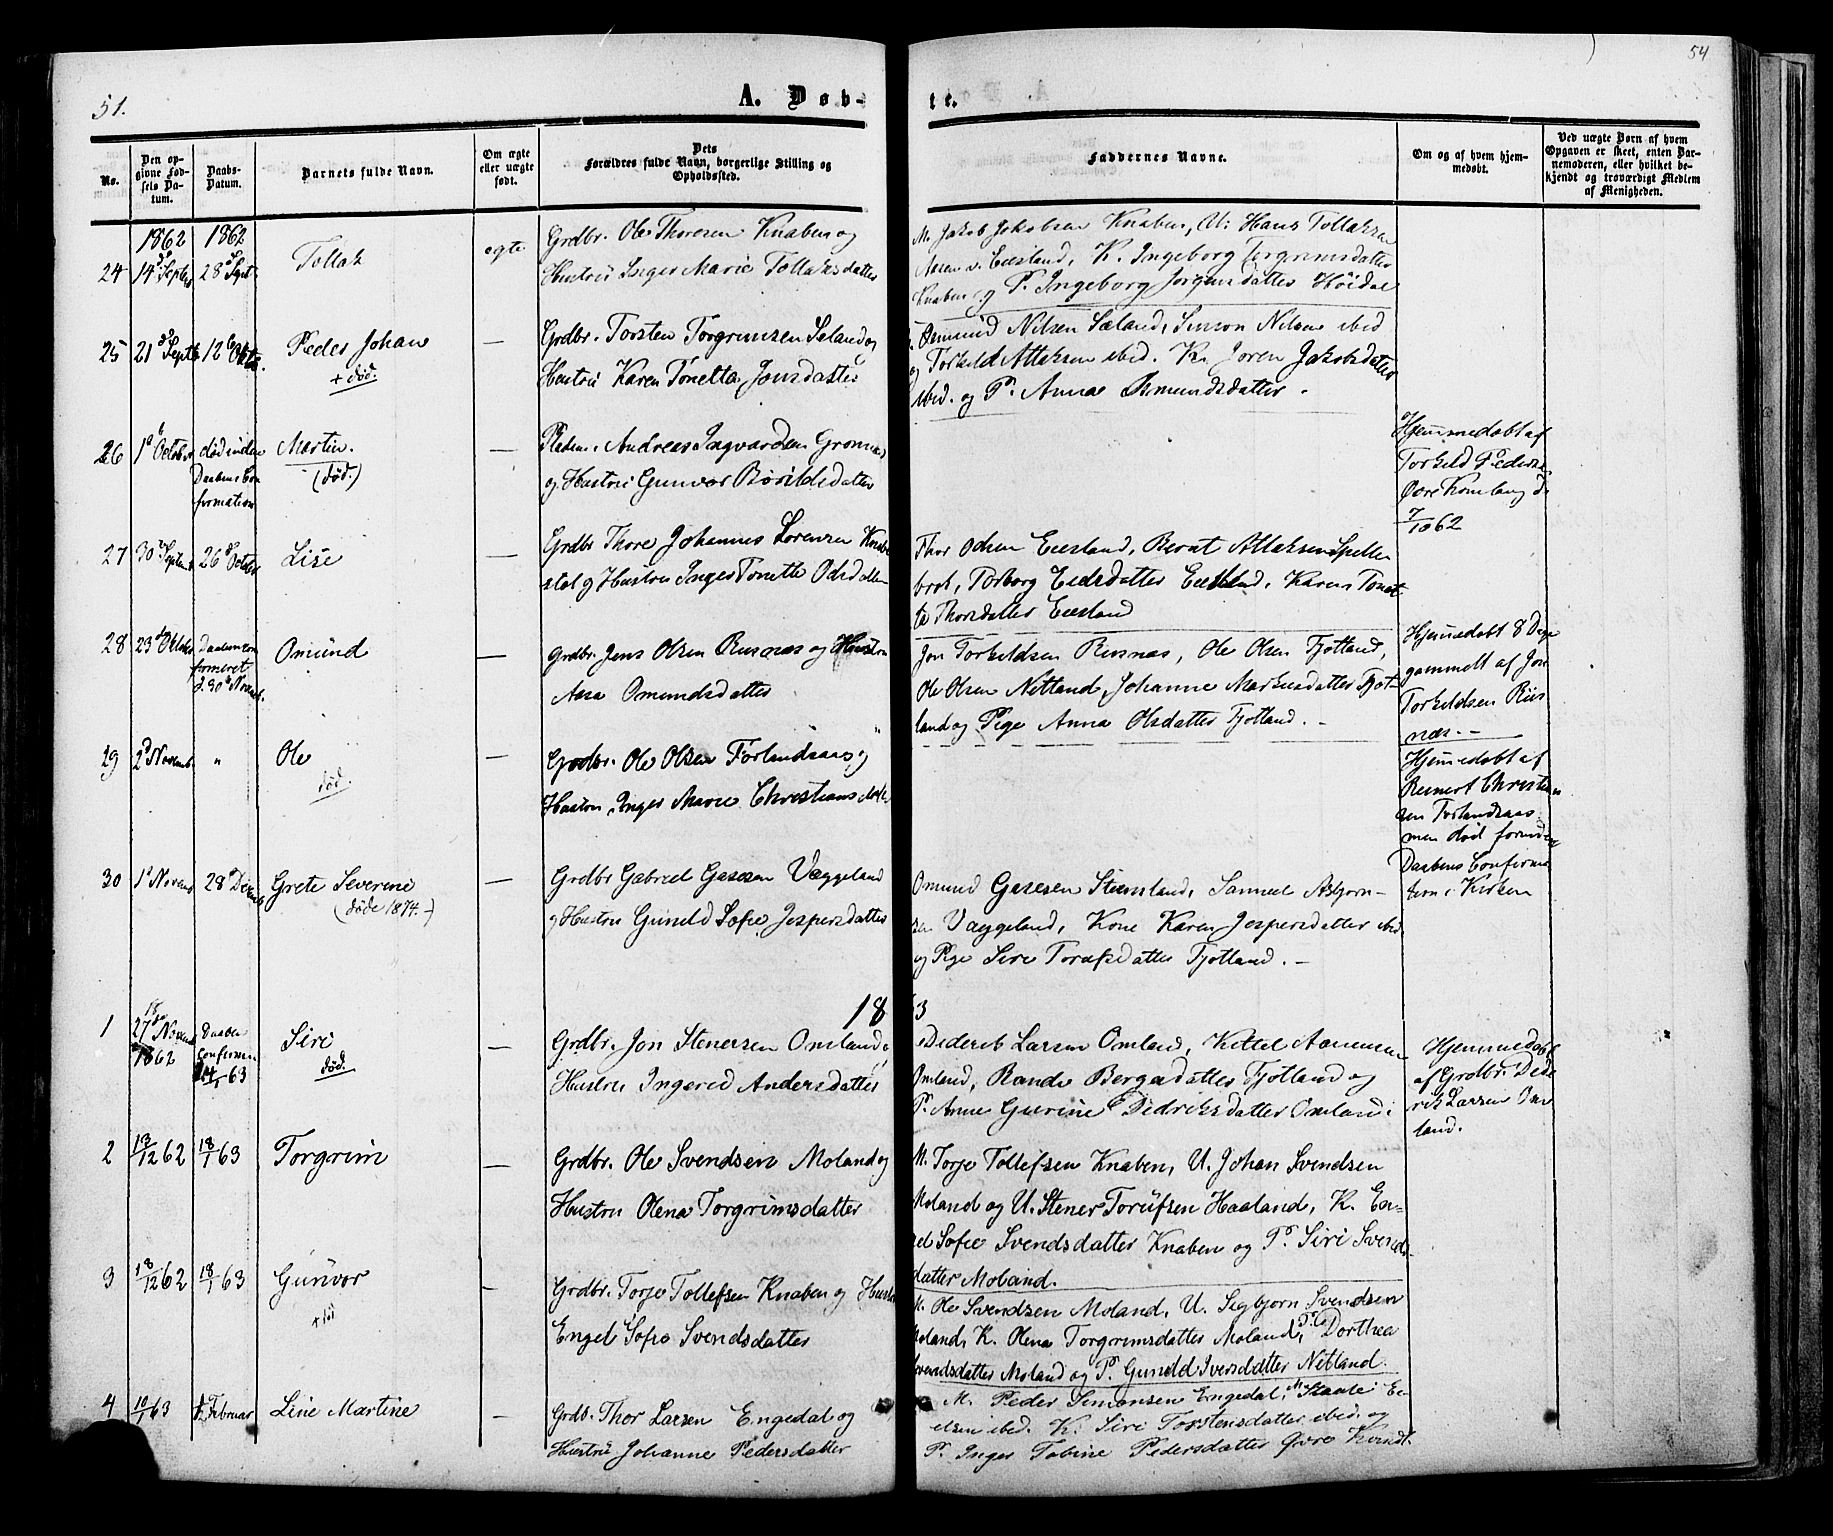 51.
54
A. Døb-
te.
No.
Den op-
givne Fød-
sels Da-
tum.
Daabs-
Datum.
Barnets fulde Navn.
Om ægte
eller uægte
født.
Dets
Forældres fulde Navn, borgerlige Stilling og
Opholdssted.
Faddernes Navne.
Om og af hvem hjem-
medøbt.
Ved uægte Børn af hvem
Opgaven er skeet, enten Bar-
nemoderen, eller hvilket be-
kjendt og troværdigt Medlem
af Menigheden.
1862
1862
24
14 Septbr
28 Sept
Tollak
egte
Grdbr. Ole Thoresen Knaben og
Hustru Inger Marie Tollaksdatter
M. Jakob Jakobsen Knaben, U. Hans Tollaksen
Aasen v. Eiesland, K. Ingeborg Torgrimsdatter
Knaben og P. Ingeborg Jørgensdatter Høidal
25
21 Septb
12 Oktb.
Peder Johan
+ død.
—
Grdbr. Torsten Torgrimsen Seland og
Hustru Karen Tonetta Jonsdatter
Osmund Nilsen Sæland, Simon Nilsen ibid
og Torkild Atlaksen ibid. K. Joren Jakobsdatter
ibid. og P. Anna Osmundsdatter.
26
1 October
død inden
Daabens Con
firmation
Martin.
(død.)
—
Andreas Ingvardsen
og Hustru Gunvor Bøvildsdatter
Hjemmedøbt af
Torkild Peders.
Øvre Komlang d.
7/10 62
27
30 Septemb
26 Octobr
Lise
—
Grdbr Thore Johannes Lorensen Knabe
stol og Hustru Inger Tonette Odsdatter
Thor Odsen Eiesland, Bernt Atlaksen Spelle
brot, Torborg Eilsdatter Eiesland, Karen Tonet
te Thorsdatter Eiesland
28
23 Oktober
Daaben con
firmeret
d. 30 Novemb.
Omund
—
Grdbr. Jens Olsen Risnæs og Hustru
Aasa Omundsdatter
Jon Torkildsen Risnæs, Ole Olsen Fjotland,
Ole Olsen Netland, Johanne Markusdatter Fjot-
land og Pige Anna Olsdatter Fjotland. -
Hjemmedøbt 8 Dage
gammelt af Jon
Torkildsen Riis
næs. -
29
2 Novemb.
"
Ole
død.
—
Grdbr. Ole Olsen Førlandsaas og
Hustru Inger Marie Christiansdatter
Hjemmedøbt af
Reinert Christian
sen Førlandsaas
men død forinden
Daabens Confirma
tion i Kirken
30
1 Novemb
28 Decemb
Grete Severine
(døde 1874. -)
—
Grdbr Gabriel Gasesen Væggeland
og Hustru Gunild Sofie Jespersdatter
Omund Gasesen Stensland, Samuel Asbjørn-
sen Væggeland, Kone Karen Jespersdatter ibid
og Pige Siri Torufsdatter Fjotland. -
18
63
1
27 Novemb
1862
Daaben
confirmeret
4/1 63
Siri
død.
—
Grdbr. Jon Stenersen Omland og
Hustru Ingerid Andersdatter
Diderik Larsen Omland, Kittel Aanensen
Omland, Rande Bergesdatter Fjotland og
P. Anne Gurine Didriksdatter Omland.
Hjemmedøbt
af Grdbr. Dide
rik Larsen Om
land.
2
13/12 62
18/1 63
Torgrim
—
Grdbr. Ole Svendsen Moland og
Hustru Olena Torgrimsdatter
M. Torje Tollefsen Knaben, U. Johan Svendsen
Moland og U. Stener Torüfsen Haaland, K. En-
gel Sofie Svendsdatter Knaben og P. Siri Svends-
datter Moland.
3
18/12 62
18/1 63
Gunvor
+ død
—
Grdbr. Torje Tollefsen Knaben og Hustru
Engel Sofie Svendsdatter
M. Ole Svendsen Moland, U. Segbjørn Svendsen
Moland, K. Olena Torgrimsdatter Moland, P. Dorthea
Svendsdatter Moland og P. Gunild Iversdatter Netland.
4
10/1 63
Februar
Line Martine
—
Grdb. Thor Larsen Engedal og
Hustru Johanne Pedersdatter
M. Peder Simonsen Engedal, M. Staale E-
elsen ibid. K. Siri Torstensdatter ibid. og
P. Inger Tobine Pedersdatter Øvre Kvindl.